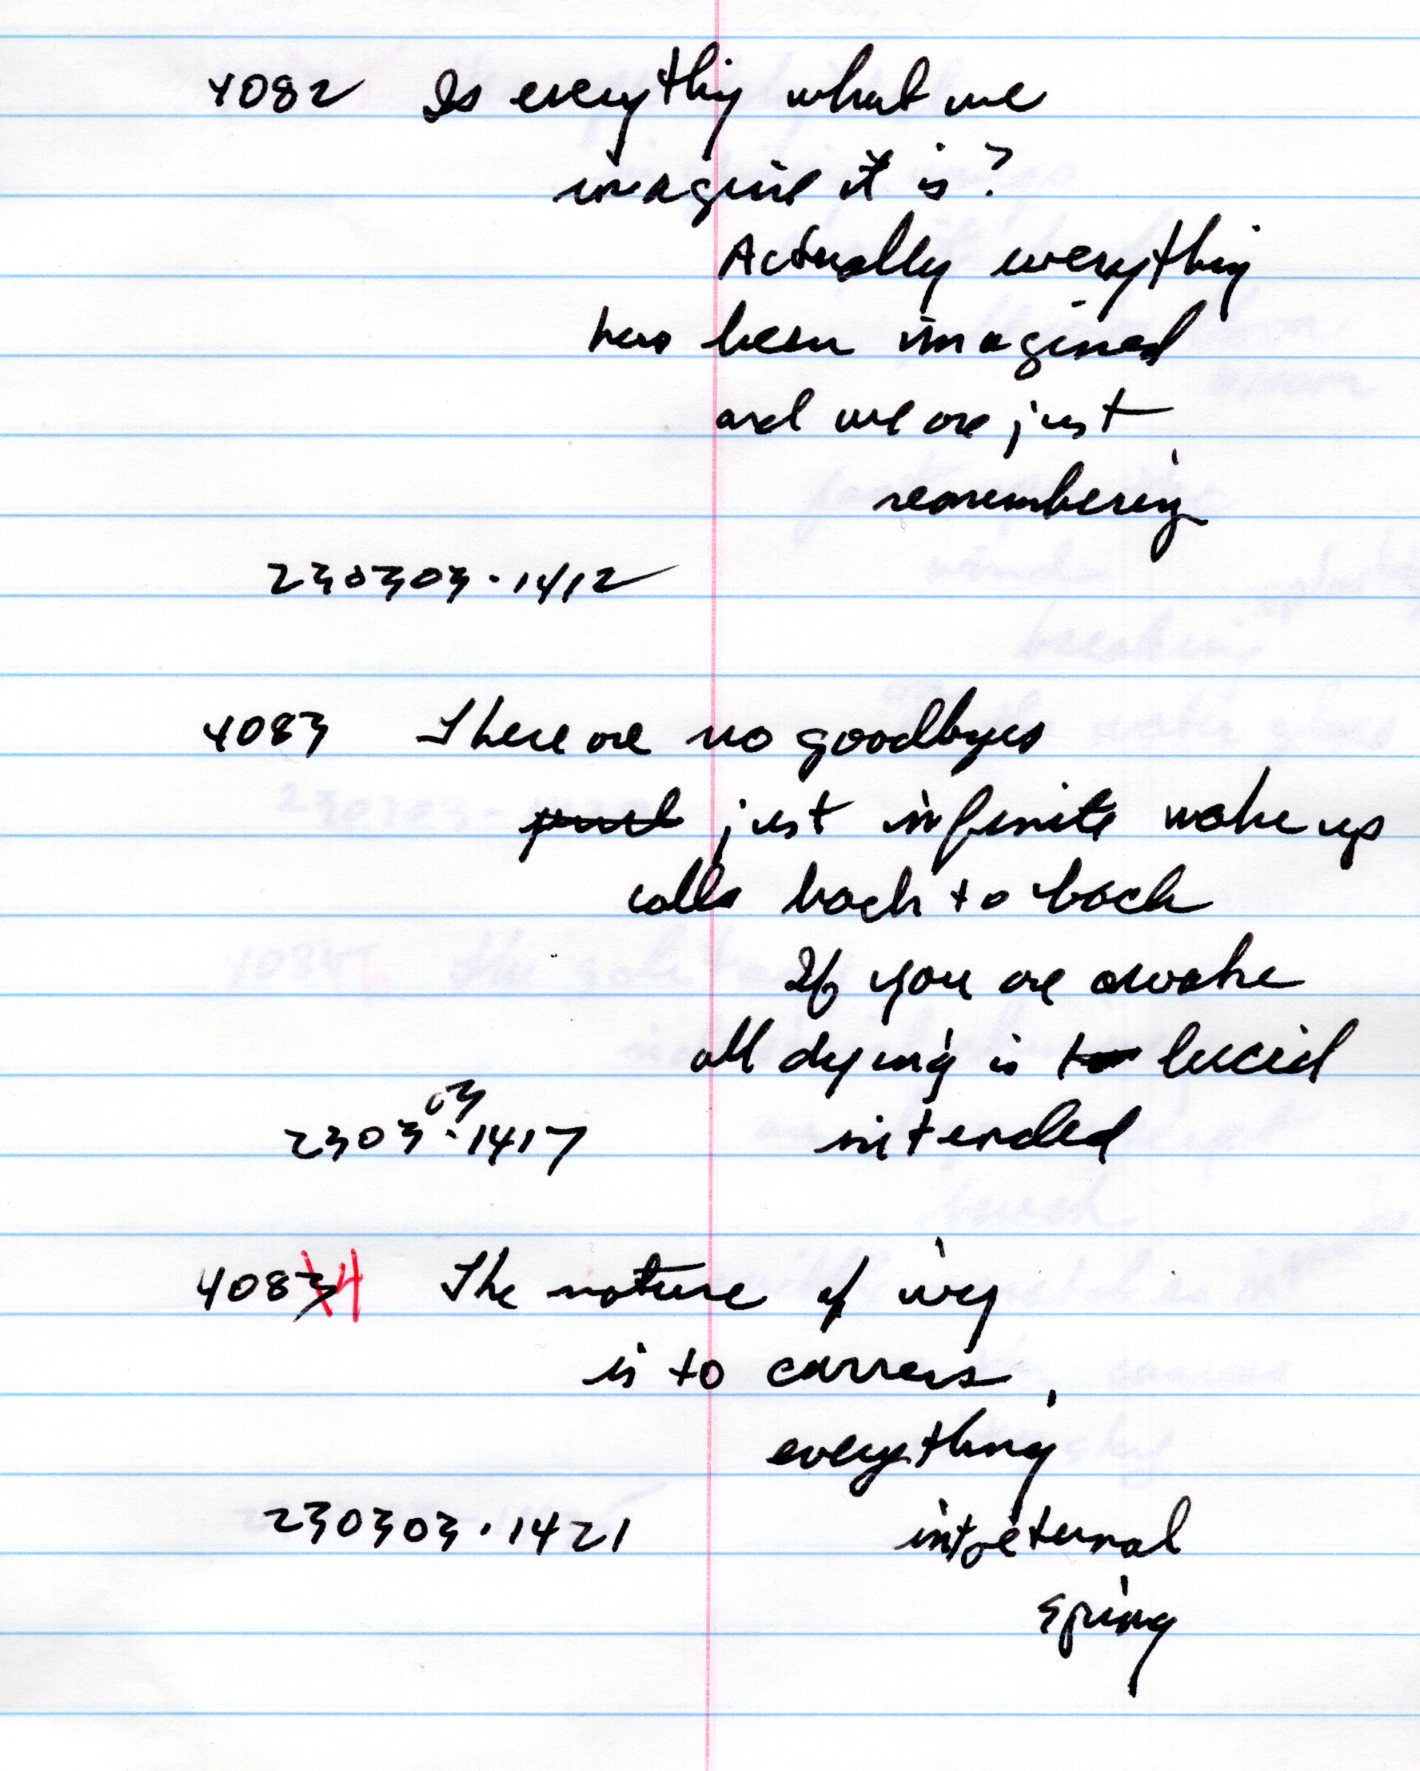 4082 Is everything what we
imagine it is?
Actually everything
has been imagined
and we are just
remembering
230303.1412
4083 There are no goodbyes
just infinite wake up
calls back to back
If you are awake
all dying is to lucid
intended
230303.1417
4084 The nature of ivy
is to caress
everything
into eternal
spring
230303.1421